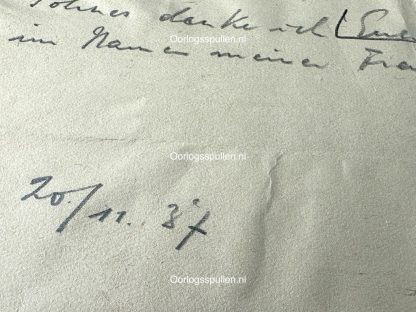 Sohnes danke ich
im Namen meiner Frau
Oorlogsspullen.nl
Oorlogsspullen.nl
20/11. 37
Oorlogsspullen.nl